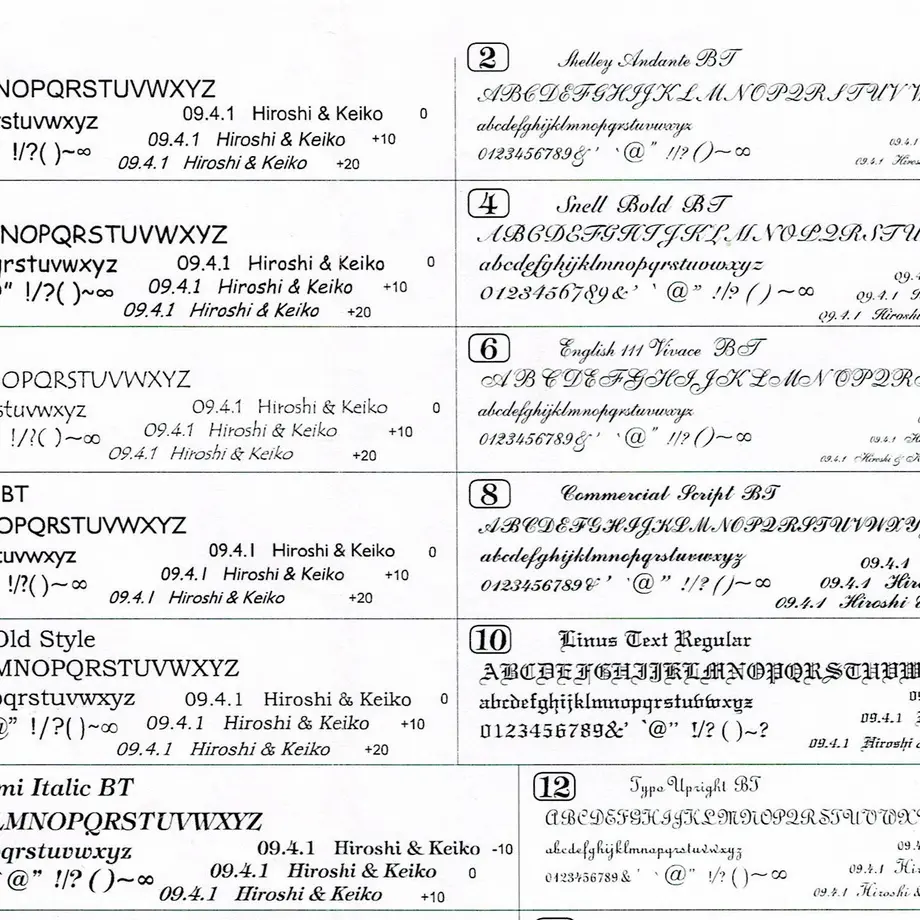 NOPQRSTUVWXYZ
rstuvwxyz 09.4.1 Hiroshi & Keiko 0
09.4.1 Hiroshi & Keiko +10
!/?( )~∞
09.4.1 Hiroshi & Keiko +20
2 Shelley Andante BT
ABCDEFGHIJKLMNOPQRSTUVW
abcdefghijklmnopqrstuvwxyz
09.4.1
0123456789&’ ‘@” !/?()~∞
09.4.1 Hiros
NOPQRSTUVWXYZ
qrstuvwxyz 09.4.1 Hiroshi & Keiko 0
” !/?( )~∞ 09.4.1 Hiroshi & Keiko +10
09.4.1 Hiroshi & Keiko +20
4 Snell Bold BT
ABCDEFGHIJKLMNOPQRSTU
abcdefghijklmnopqrstuvwxyz
09.4
0123456789&’ ‘@” !/?()~∞
09.4.1 H
09.4.1 Hirosh
OPQRSTUVWXYZ
stuvwxyz 09.4.1 Hiroshi & Keiko 0
!/?( )~∞ 09.4.1 Hiroshi & Keiko +10
09.4.1 Hiroshi & Keiko +20
6 English 111 Vivace BT
ABCDEFGHIJKLMNOPQR
abcdefghijklmnopqrstuvwxyz
0123456789&’ ‘@” !/?()~∞
09.4.1 H
09.4.1 Hiroshi & K
BT
OPQRSTUVWXYZ
tuvwxyz 09.4.1 Hiroshi & Keiko 0
!/?( )~∞ 09.4.1 Hiroshi & Keiko +10
09.4.1 Hiroshi & Keiko +20
8 Commercial Script BT
ABCDEFGHIJKLMNOPQRSTUVWXY
abcdefghijklmnopqrstuvwxyz 09.4.1
0123456789&’ ‘@” !/?()~∞ 09.4.1 Hir
09.4.1 Hiroshi &
Old Style
MNOPQRSTUVWXYZ
pqrstuvwxyz 09.4.1 Hiroshi & Keiko 0
@” !/?( )~∞ 09.4.1 Hiroshi & Keiko +10
09.4.1 Hiroshi & Keiko +20
10 Linus Text Regular
ABCDEFGHIJKLMNOPQRSTUVW
abcdefghijklmnopqrstuvwxyz
09
0123456789&’ ‘@” !/?( )~?
09.4.1
09.4.1 Hiroshi &
mi Italic BT
LMNOPQRSTUVWXYZ
qrstuvwxyz 09.4.1 Hiroshi & Keiko -10
‘@” !/?( )~∞ 09.4.1 Hiroshi & Keiko 0
09.4.1 Hiroshi & Keiko +10
12 Typo Upright BT
ABCDEFGHIJKLMNOPQRSTUVWX
abcdefghijklmnopqrstuvwxyz 09.4
0123456789& ’ ‘@” !/?( )~∞ 09.4.1 Hi
09.4.1 Hiroshi &